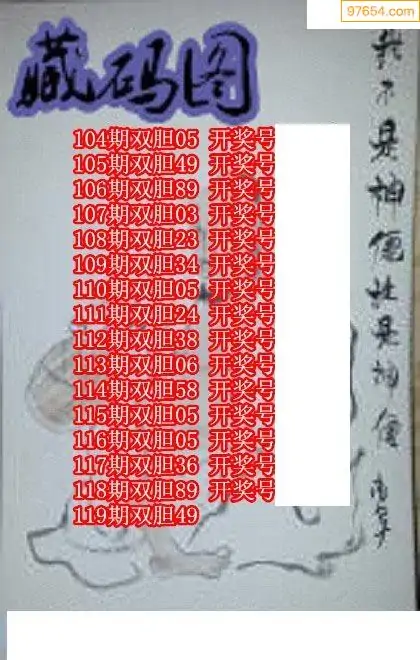 97654.com
藏码图
104期双胆05 开奖号
105期双胆49 开奖号
106期双胆89 开奖号
107期双胆03 开奖号
108期双胆23 开奖号
109期双胆34 开奖号
110期双胆05 开奖号
111期双胆24 开奖号
112期双胆38 开奖号
113期双胆06 开奖号
114期双胆58 开奖号
115期双胆05 开奖号
116期双胆05 开奖号
117期双胆36 开奖号
118期双胆89 开奖号
119期双胆49
不是神便是神